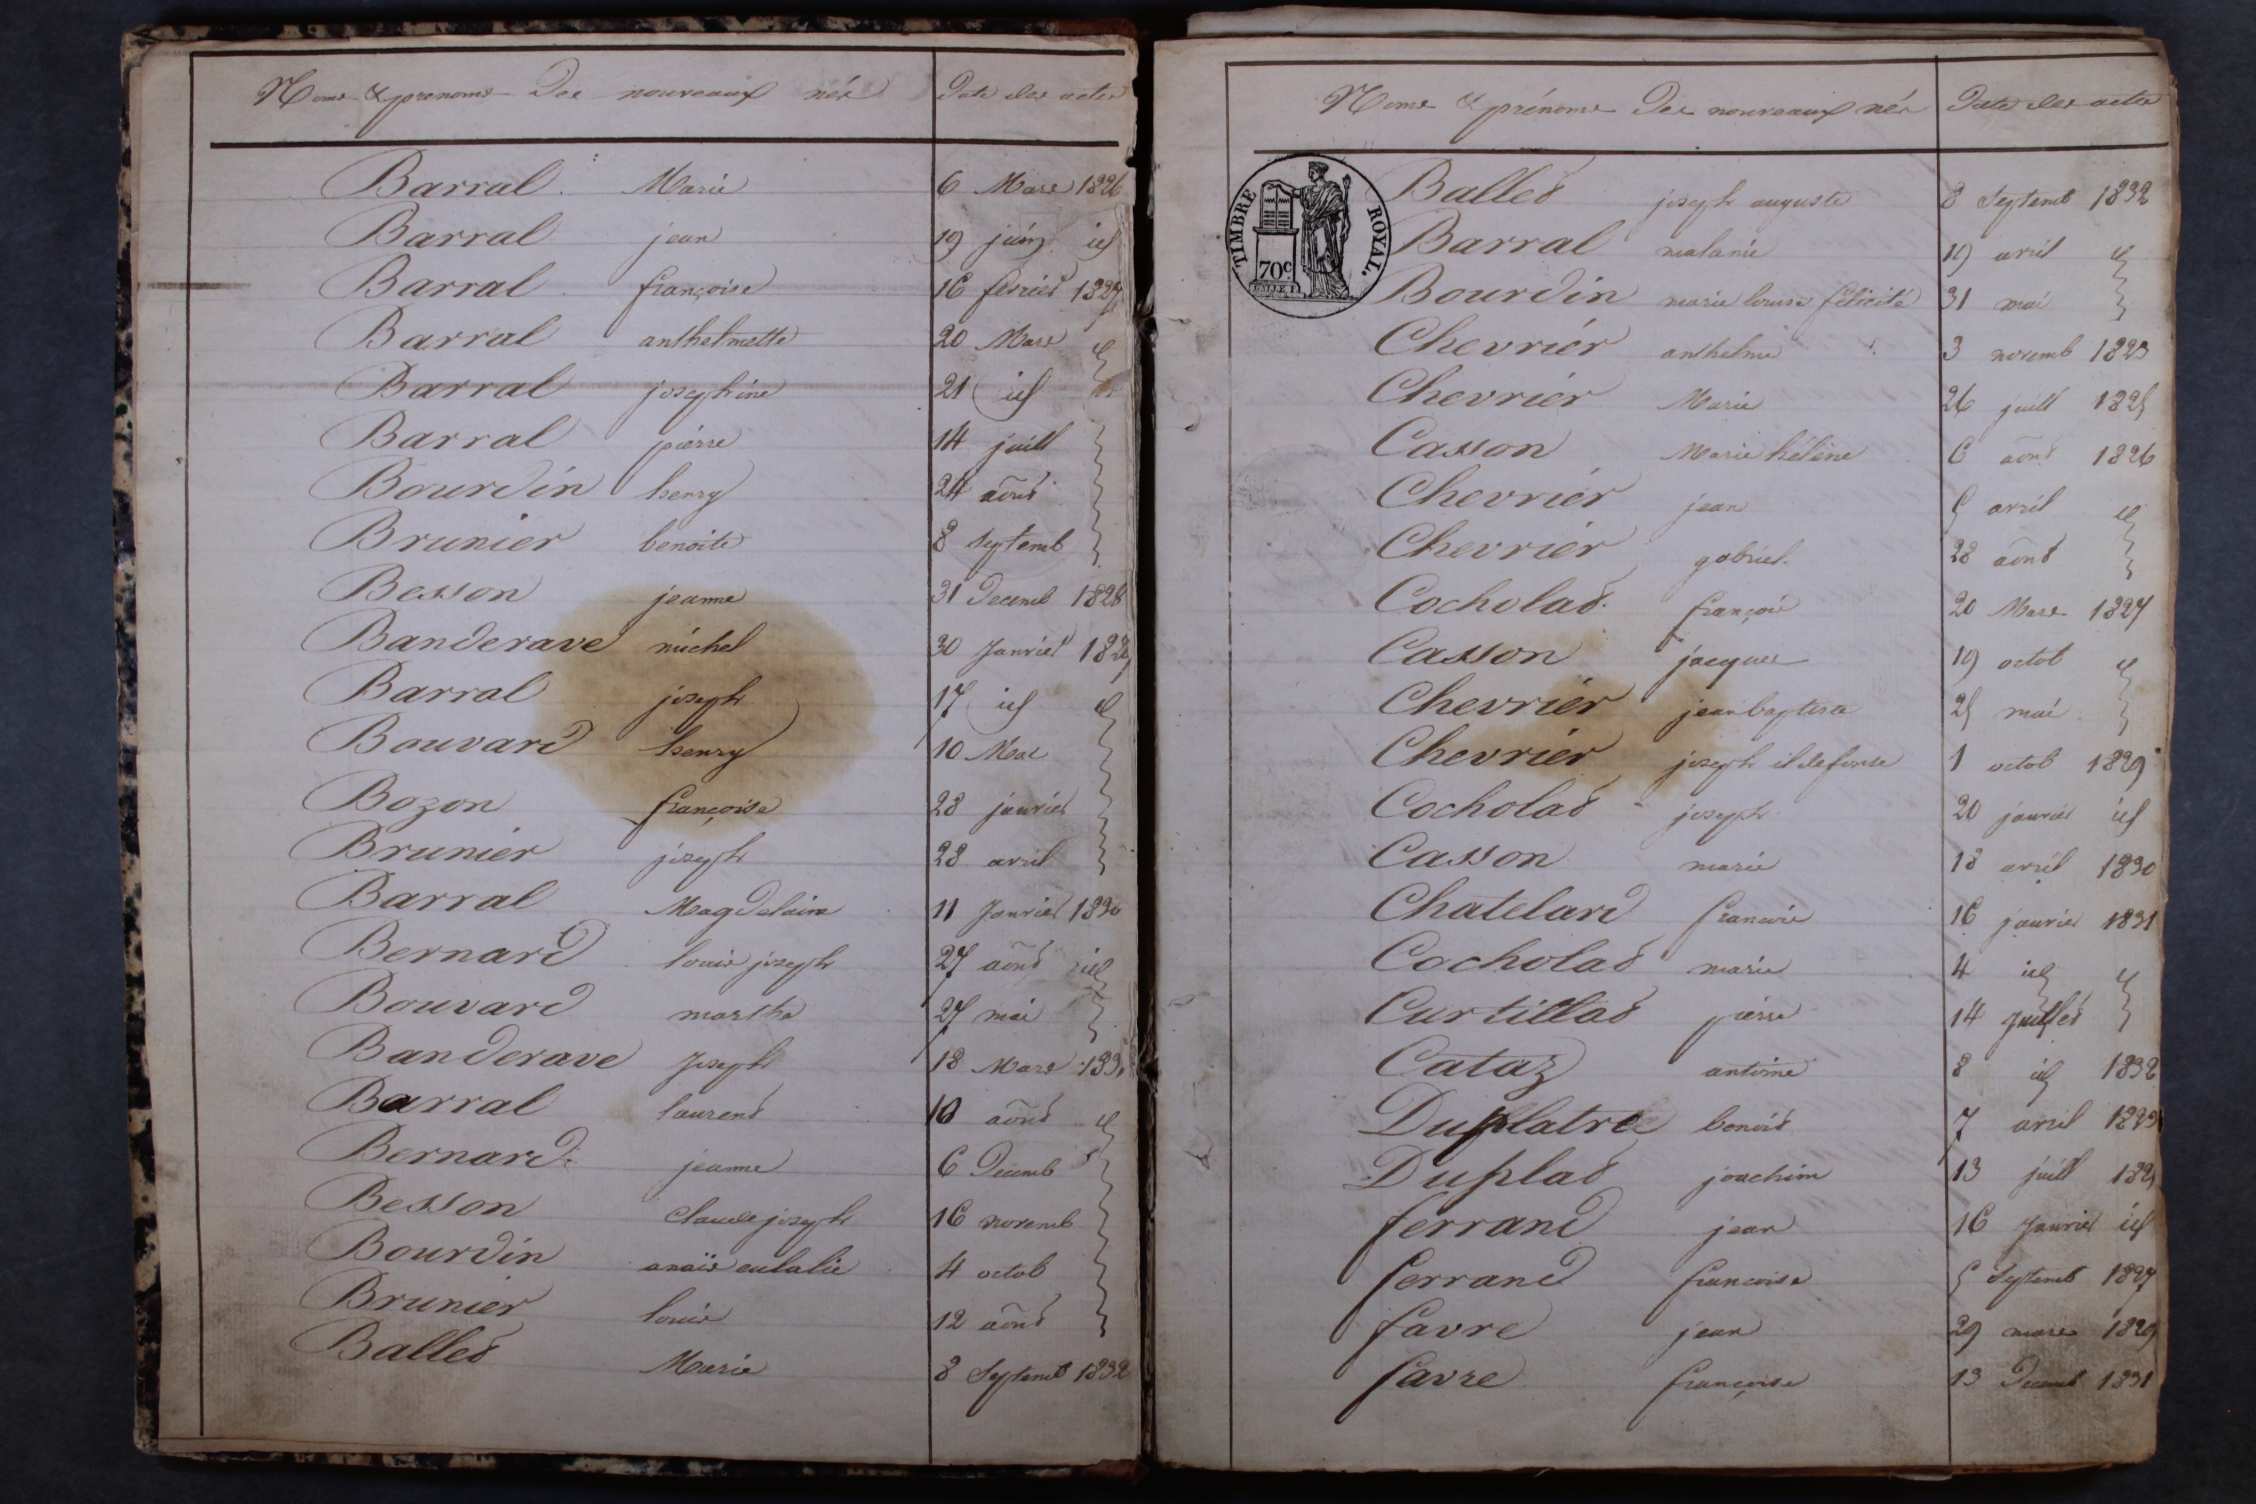 Noms & prenoms Des nouveaux nés Date des actes
Barral Marie 6 Mars 1826
Barral jean 19 juin id
Barral françoise 16 fevrier 1827
Barral anthelmette 20 Mars id
Barral josephine 21 id
Barral pierre 14 juill
Bourdin henry 24 aout
Brunier benoite 8 septemb
Besson jeanne 31 Decemb 1828
Banderave michel 30 Janvier 1829
Barral joseph 17 id id
Bouvard henry 10 Mai
Bozon françoise 28 janvier
Brunier joseph 28 avril
Barral Magdelaine 11 Janvier 1830
Bernard louis joseph 27 aout id
Bouvard marthe 27 mai
Banderave Joseph 18 Mars 1831
Barral laurent 10 aout id
Bernard jeanne 6 Decemb
Besson Claude joseph 16 novemb
Bourdin anaïs eulalie 4 octob
Brunier louis 12 aout
Ballet Marie 8 Septemb 1832
Noms & prénoms Des nouveaux nés Date des actes
TIMBRE ROYAL.
70c
Ballet joseph auguste 8 Septemb 1832
Barral melanie 19 avril id
Bourdin marie louise félicité 31 mai
Chevrier anthelme 3 novemb 1823
Chevrier Marie 26 juill 1825
Casson Marie hélène 6 aout 1826
Chevrier jean 5 avril id
Chevrier gabriel 28 aout
Cocholat françois 20 Mars 1827
Casson jacques 19 octob id
Chevrier jean baptiste 25 mai
Chevrier joseph ildefonse 1 octob 1829
Cocholat joseph 20 janvier id
Casson marie 18 avril 1830
Chatelard francois 16 janvier 1831
Cocholat marie 4 id id
Curtillat pierre 14 juillet
Cataz antoine 8 id 1832
Duplatre benoit 7 avril 1823
Duplat joachim 13 juill 1825
ferrand jean 16 Janvier id
ferrand francoise 5 Septemb 1827
favre jean 29 mars 1829
favre françoise 13 Decemb 1831